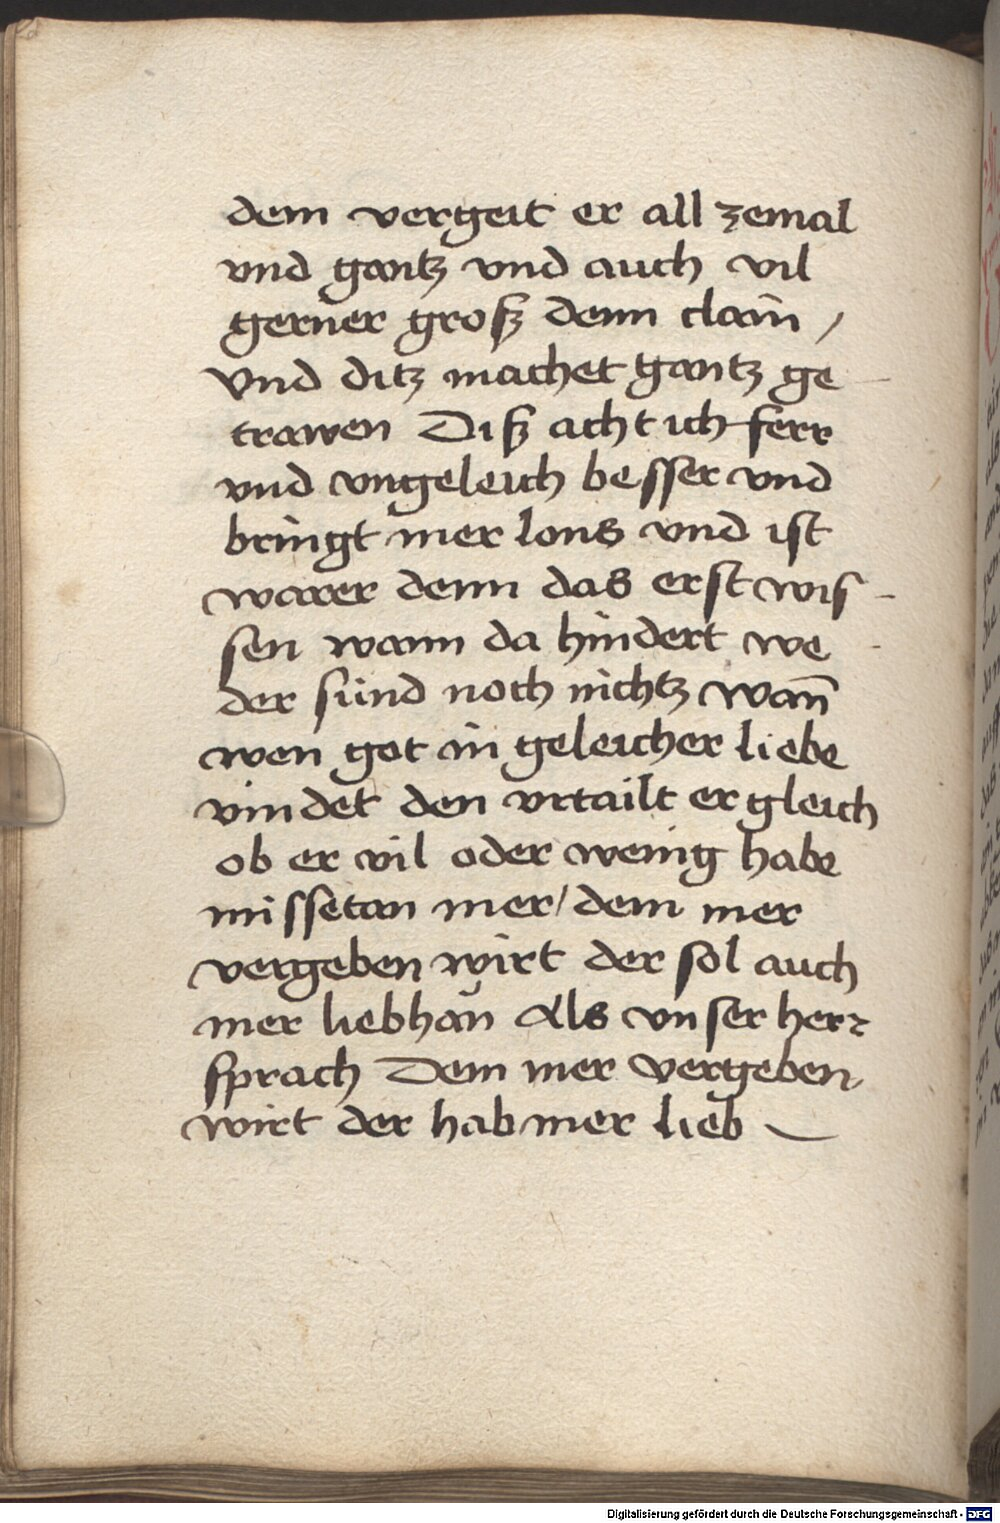 dem vergeit er all zemal
vnd gantz vnd auch vil
gerner grosz denn clain /
Vnd ditz machet gantz ge
trawen Disz acht ich ferr
vnd vngeleich besser vnd
bringt mer lons vnd ist
warer denn das erst wis -
sen wann da hindert we -
der sünd noch nichtz wan̄
wen got in geleicher liebe
vindet den vrtailt er gleich
ob er vil oder wenig habe
missetan mer / dem mer
vergeben wirt der sol auch
mer liebhan Als vnser herr
sprach Dem mer vergeben
wirt der hab mer lieb
Digitalisierung gefördert durch die Deutsche Forschungsgemeinschaft - DFG